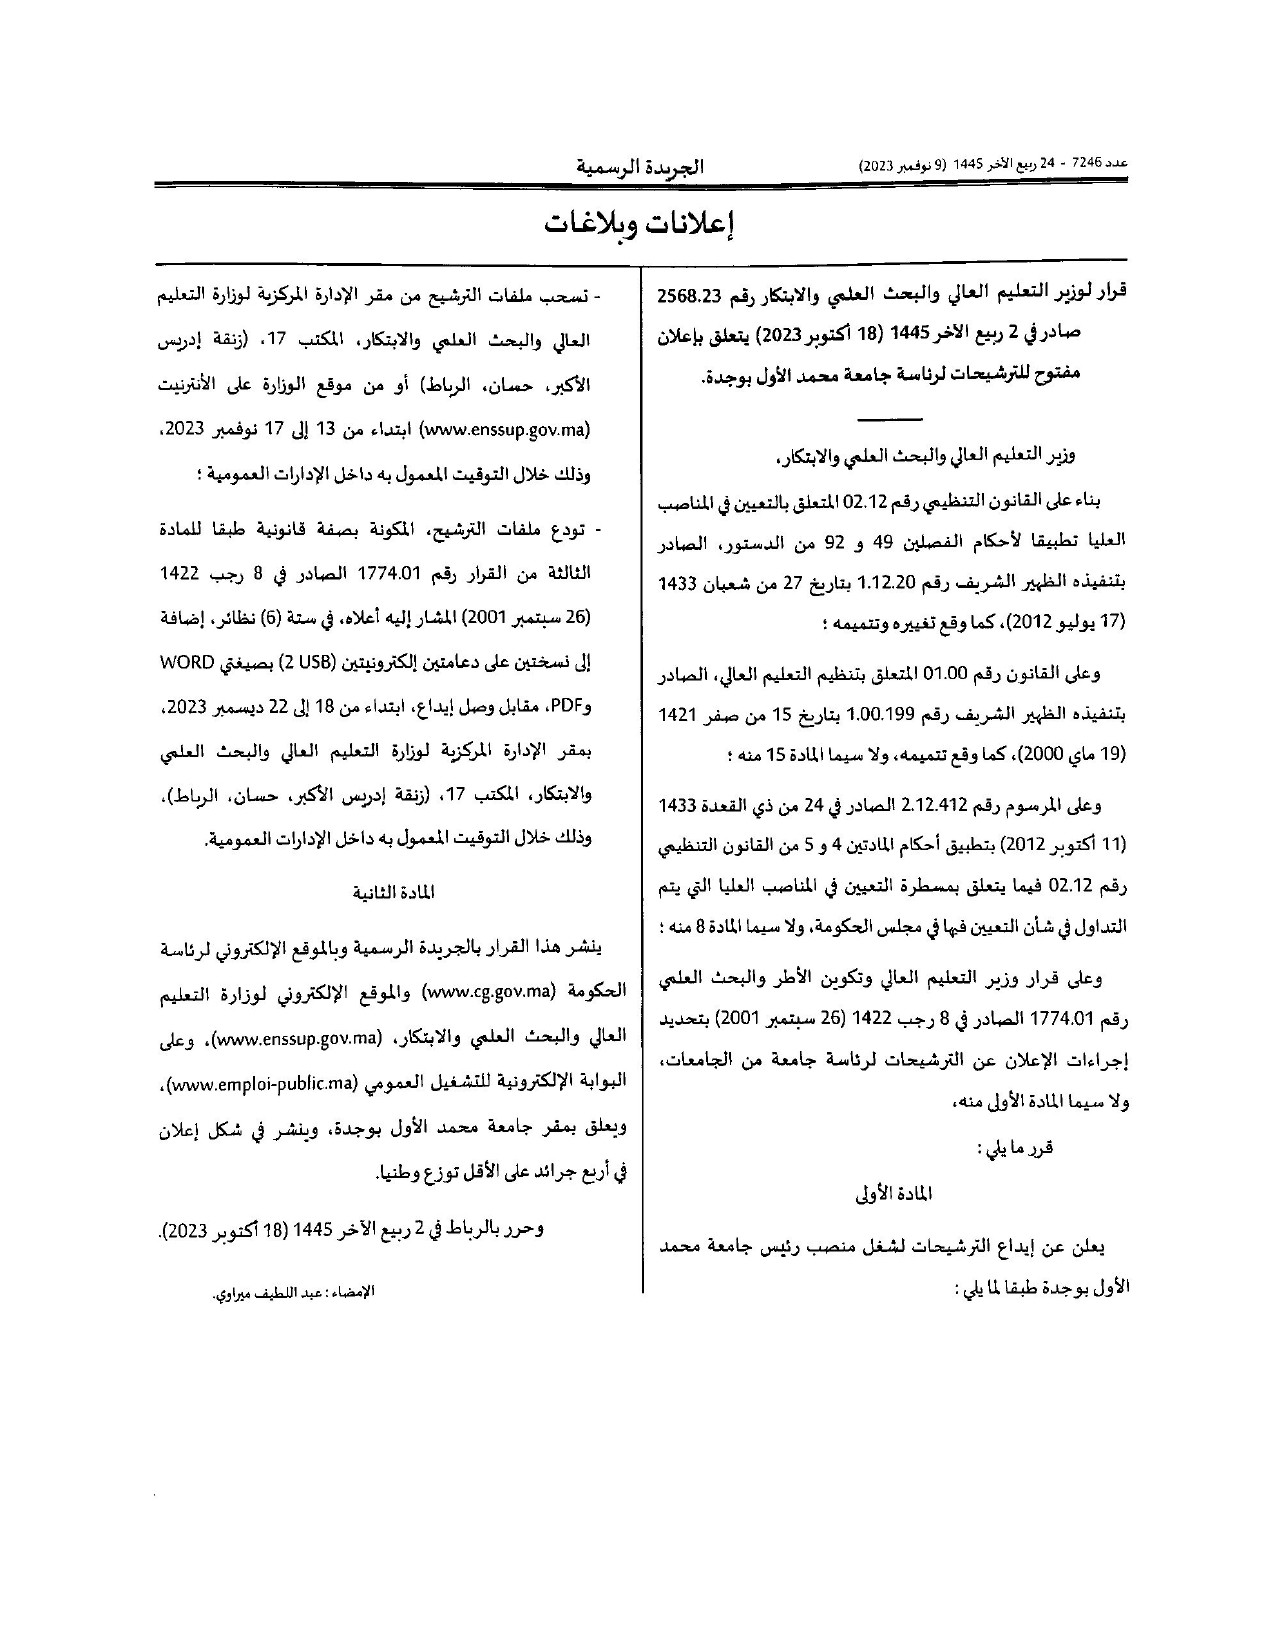 عدد 7246 - 24 ربيع الآخر 1445 (9 نوفمبر 2023)
الجريدة الرسمية
إعلانات وبلاغات
قرار لوزير التعليم العالي والبحث العلمي والابتكار رقم 2568.23
صادر في 2 ربيع الآخر 1445 (18 أكتوبر 2023) يتعلق بإعلان
مفتوح للترشيحات لرئاسة جامعة محمد الأول بوجدة.
وزير التعليم العالي والبحث العلمي والابتكار،
بناء على القانون التنظيمي رقم 02.12 المتعلق بالتعيين في المناصب
العليا تطبيقا لأحكام الفصلين 49 و 92 من الدستور، الصادر
بتنفيذه الظهير الشريف رقم 1.12.20 بتاريخ 27 من شعبان 1433
(17 يوليو 2012)، كما وقع تغييره وتتميمه ؛
وعلى القانون رقم 01.00 المتعلق بتنظيم التعليم العالي، الصادر
بتنفيذه الظهير الشريف رقم 1.00.199 بتاريخ 15 من صفر 1421
(19 ماي 2000)، كما وقع تتميمه، ولا سيما المادة 15 منه ؛
وعلى المرسوم رقم 2.12.412 الصادر في 24 من ذي القعدة 1433
(11 أكتوبر 2012) بتطبيق أحكام المادتين 4 و 5 من القانون التنظيمي
رقم 02.12 فيما يتعلق بمسطرة التعيين في المناصب العليا التي يتم
التداول في شأن التعيين فيها في مجلس الحكومة، ولا سيما المادة 8 منه ؛
وعلى قرار وزير التعليم العالي وتكوين الأطر والبحث العلمي
رقم 1774.01 الصادر في 8 رجب 1422 (26 سبتمبر 2001) بتحديد
إجراءات الإعلان عن الترشيحات لرئاسة جامعة من الجامعات،
ولا سيما المادة الأولى منه،
قرر ما يلي :
المادة الأولى
يعلن عن إيداع الترشيحات لشغل منصب رئيس جامعة محمد
الأول بوجدة طبقا لما يلي :
- تسحب ملفات الترشيح من مقر الإدارة المركزية لوزارة التعليم
العالي والبحث العلمي والابتكار، المكتب 17، (زنقة إدريس
الأكبر، حسان، الرباط) أو من موقع الوزارة على الأنترنيت
(www.enssup.gov.ma) ابتداء من 13 إلى 17 نوفمبر 2023،
وذلك خلال التوقيت المعمول به داخل الإدارات العمومية ؛
- تودع ملفات الترشيح، المكونة بصفة قانونية طبقا للمادة
الثالثة من القرار رقم 1774.01 الصادر في 8 رجب 1422
(26 سبتمبر 2001) المشار إليه أعلاه، في ستة (6) نظائر، إضافة
إلى نسختين على دعامتين إلكترونيتين (2 USB) بصيغتي WORD
وPDF، مقابل وصل إيداع، ابتداء من 18 إلى 22 ديسمبر 2023،
بمقر الإدارة المركزية لوزارة التعليم العالي والبحث العلمي
والابتكار، المكتب 17، (زنقة إدريس الأكبر، حسان، الرباط)،
وذلك خلال التوقيت المعمول به داخل الإدارات العمومية.
المادة الثانية
ينشر هذا القرار بالجريدة الرسمية وبالموقع الإلكتروني لرئاسة
الحكومة (www.cg.gov.ma) والموقع الإلكتروني لوزارة التعليم
العالي والبحث العلمي والابتكار، (www.enssup.gov.ma)، وعلى
البوابة الإلكترونية للتشغيل العمومي (www.emploi-public.ma)،
ويعلق بمقر جامعة محمد الأول بوجدة، وينشر في شكل إعلان
في أربع جرائد على الأقل توزع وطنيا.
وحرر بالرباط في 2 ربيع الآخر 1445 (18 أكتوبر 2023).
الإمضاء : عبد اللطيف ميراوي.